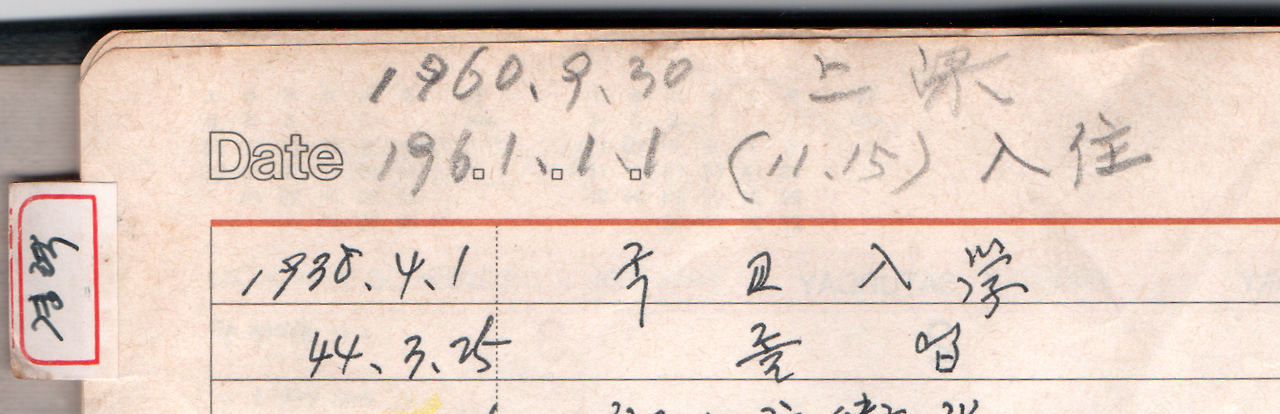 1960、9、30 上梁
Date 1961、1、1 (11.15) 入住
1938、4、1 국교入学
44、3、25 졸업